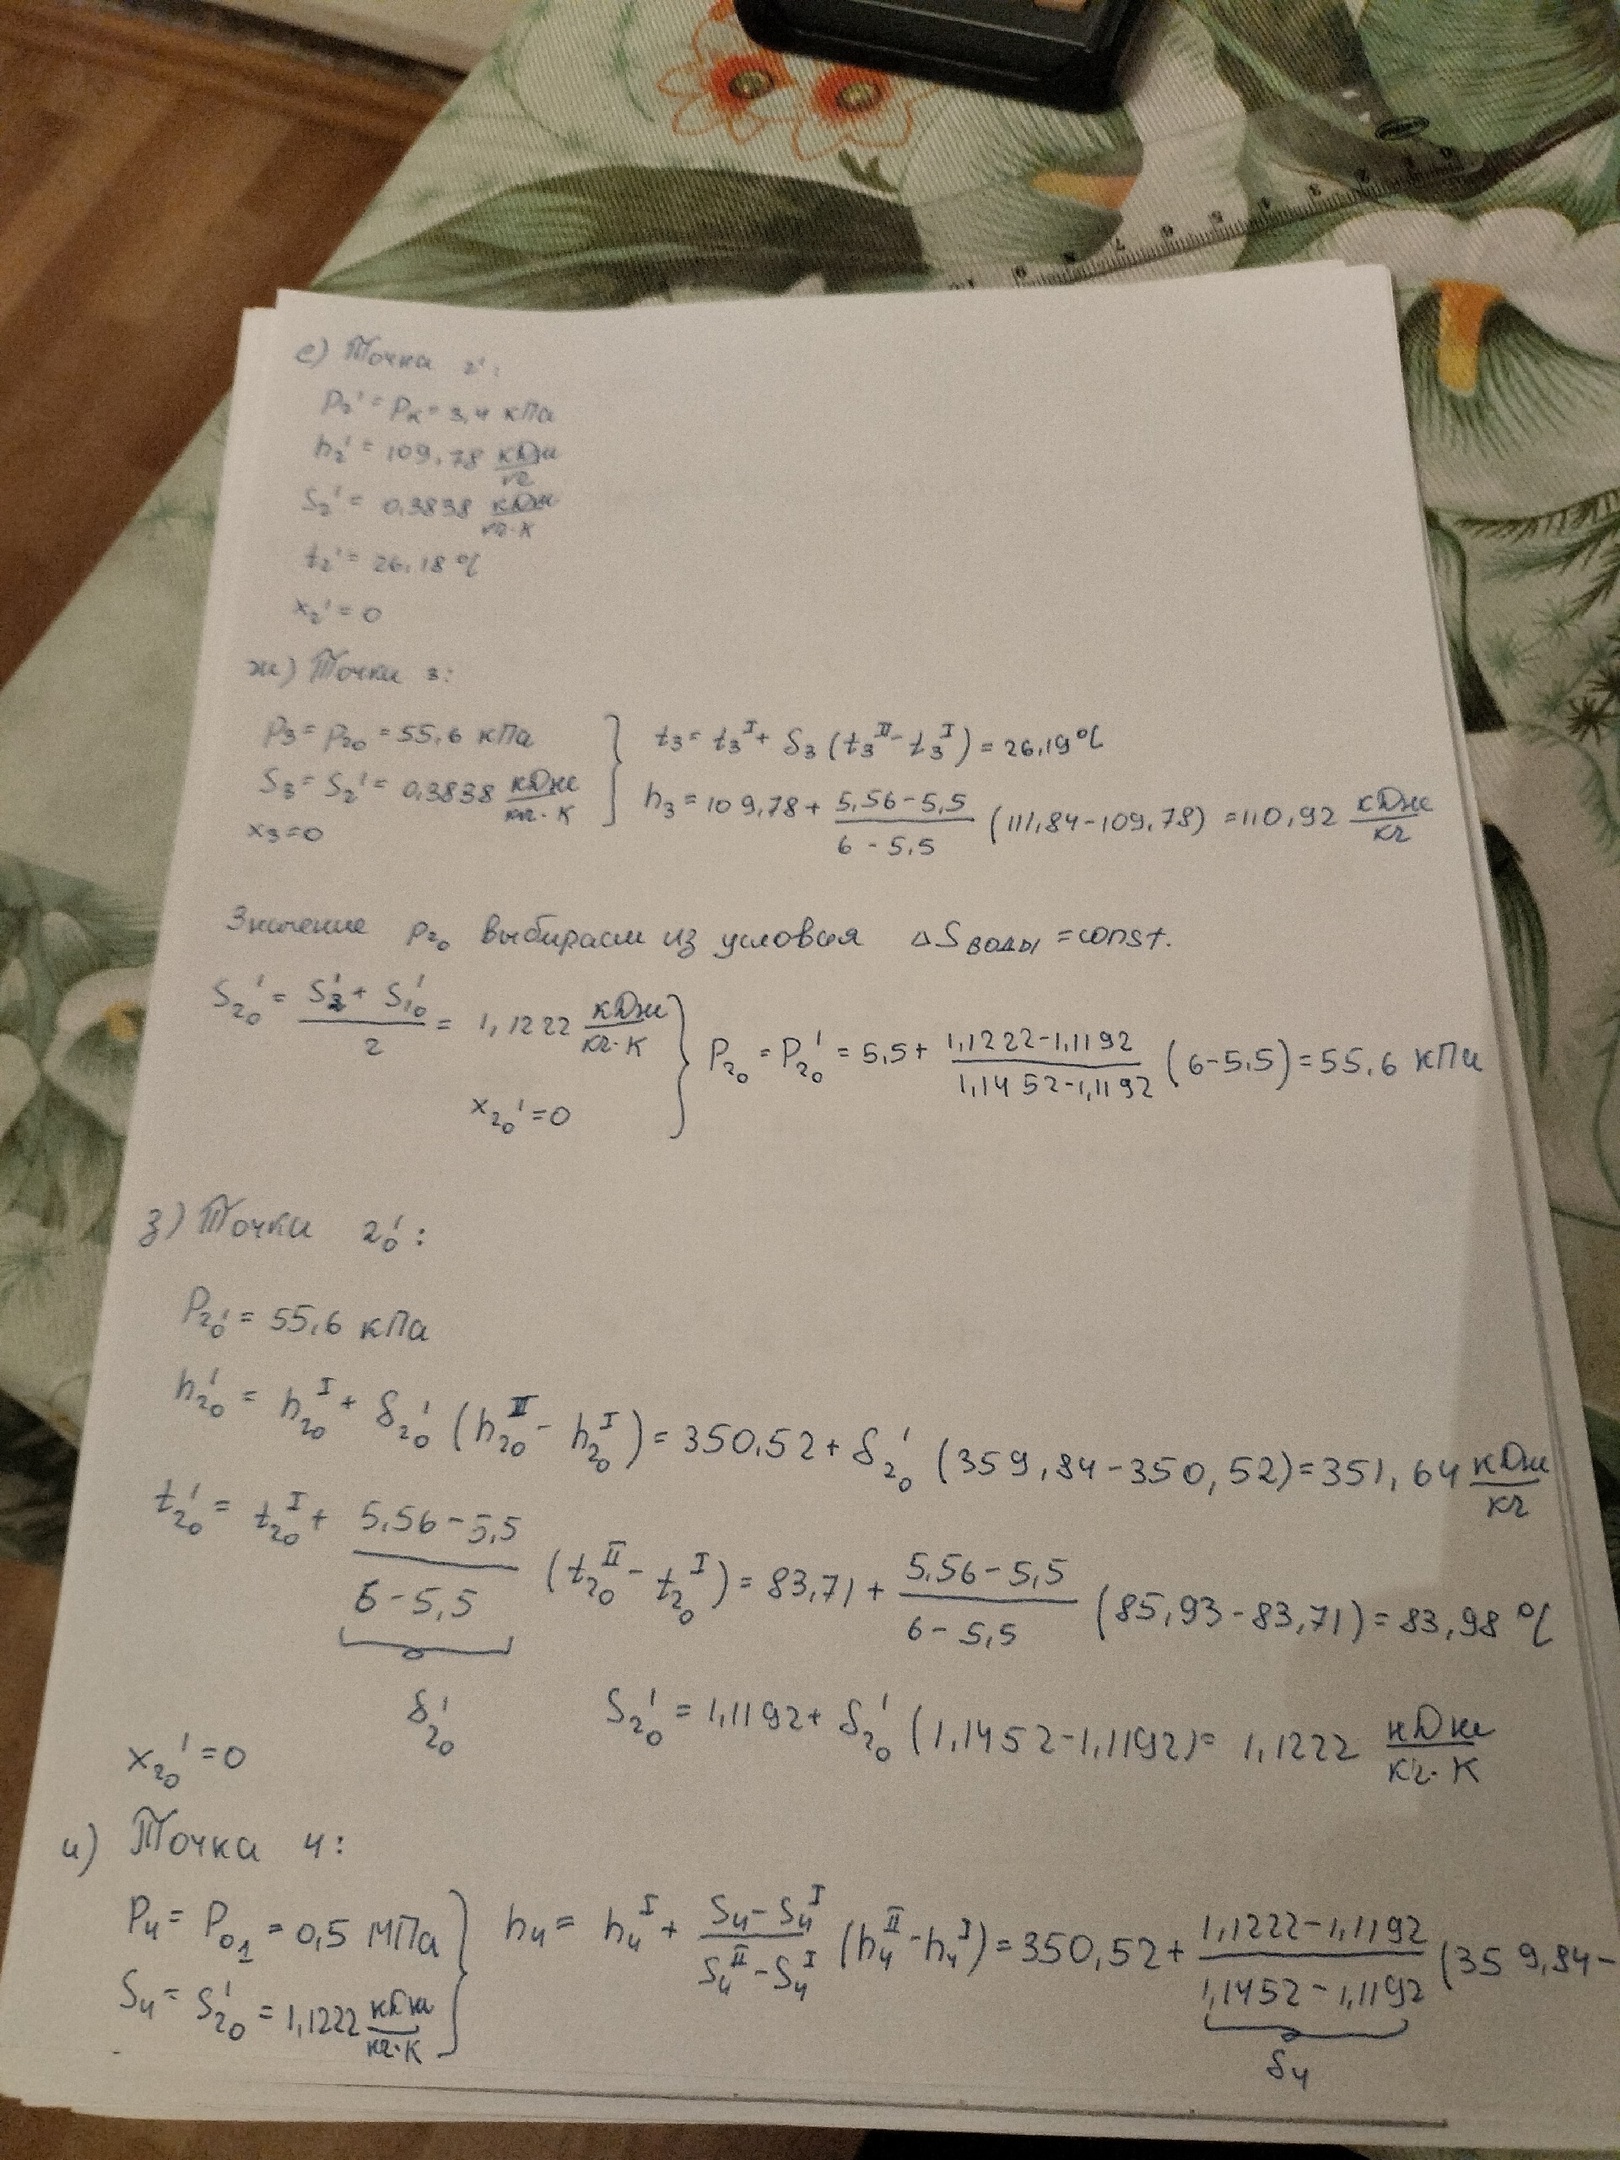 е) Точка 2':
P₂' = Pк = 3,4 кПа
h₂' = 109,78 кДж/кг
S₂' = 0,3838 кДж/кг·К
t₂' = 26,18 °C
x₂' = 0
ж) Точка 3:
P₃ = P₂₀ = 55,6 кПа } t₃ = t₃ᴵ + δ₃ (t₃ᴵᴵ - t₃ᴵ) = 26,19 °C
S₃ = S₂' = 0,3838 кДж/кг·К } h₃ = 109,78 + (5,56 - 5,5)/(6 - 5,5) (111,84 - 109,78) = 110,92 кДж/кг
x₃ = 0
Значение P₂₀ выбираем из условия ΔS воды = const.
S₂₀' = (S₂' + S₁₀')/2 = 1,1222 кДж/кг·К } P₂₀ = P₂₀' = 5,5 + (1,1222 - 1,1192)/(1,1452 - 1,1192) (6 - 5,5) = 55,6 кПа
x₂₀' = 0
з) Точка 2₀':
P₂₀' = 55,6 кПа
h₂₀' = h₂₀ᴵ + δ₂₀' (h₂₀ᴵᴵ - h₂₀ᴵ) = 350,52 + δ₂₀' (359,84 - 350,52) = 351,64 кДж/кг
t₂₀' = t₂₀ᴵ + (5,56 - 5,5)/(6 - 5,5) (t₂₀ᴵᴵ - t₂₀ᴵ) = 83,71 + (5,56 - 5,5)/(6 - 5,5) (85,93 - 83,71) = 83,98 °C
δ₂₀' S₂₀' = 1,1192 + δ₂₀' (1,1452 - 1,1192) = 1,1222 кДж/кг·К
x₂₀' = 0
и) Точка 4:
P₄ = P₀₁ = 0,5 МПа } h₄ = h₄ᴵ + (S₄ - S₄ᴵ)/(S₄ᴵᴵ - S₄ᴵ) (h₄ᴵᴵ - h₄ᴵ) = 350,52 + (1,1222 - 1,1192)/(1,1452 - 1,1192) (359,84 -
S₄ = S₂₀' = 1,1222 кДж/кг·К
δ₄